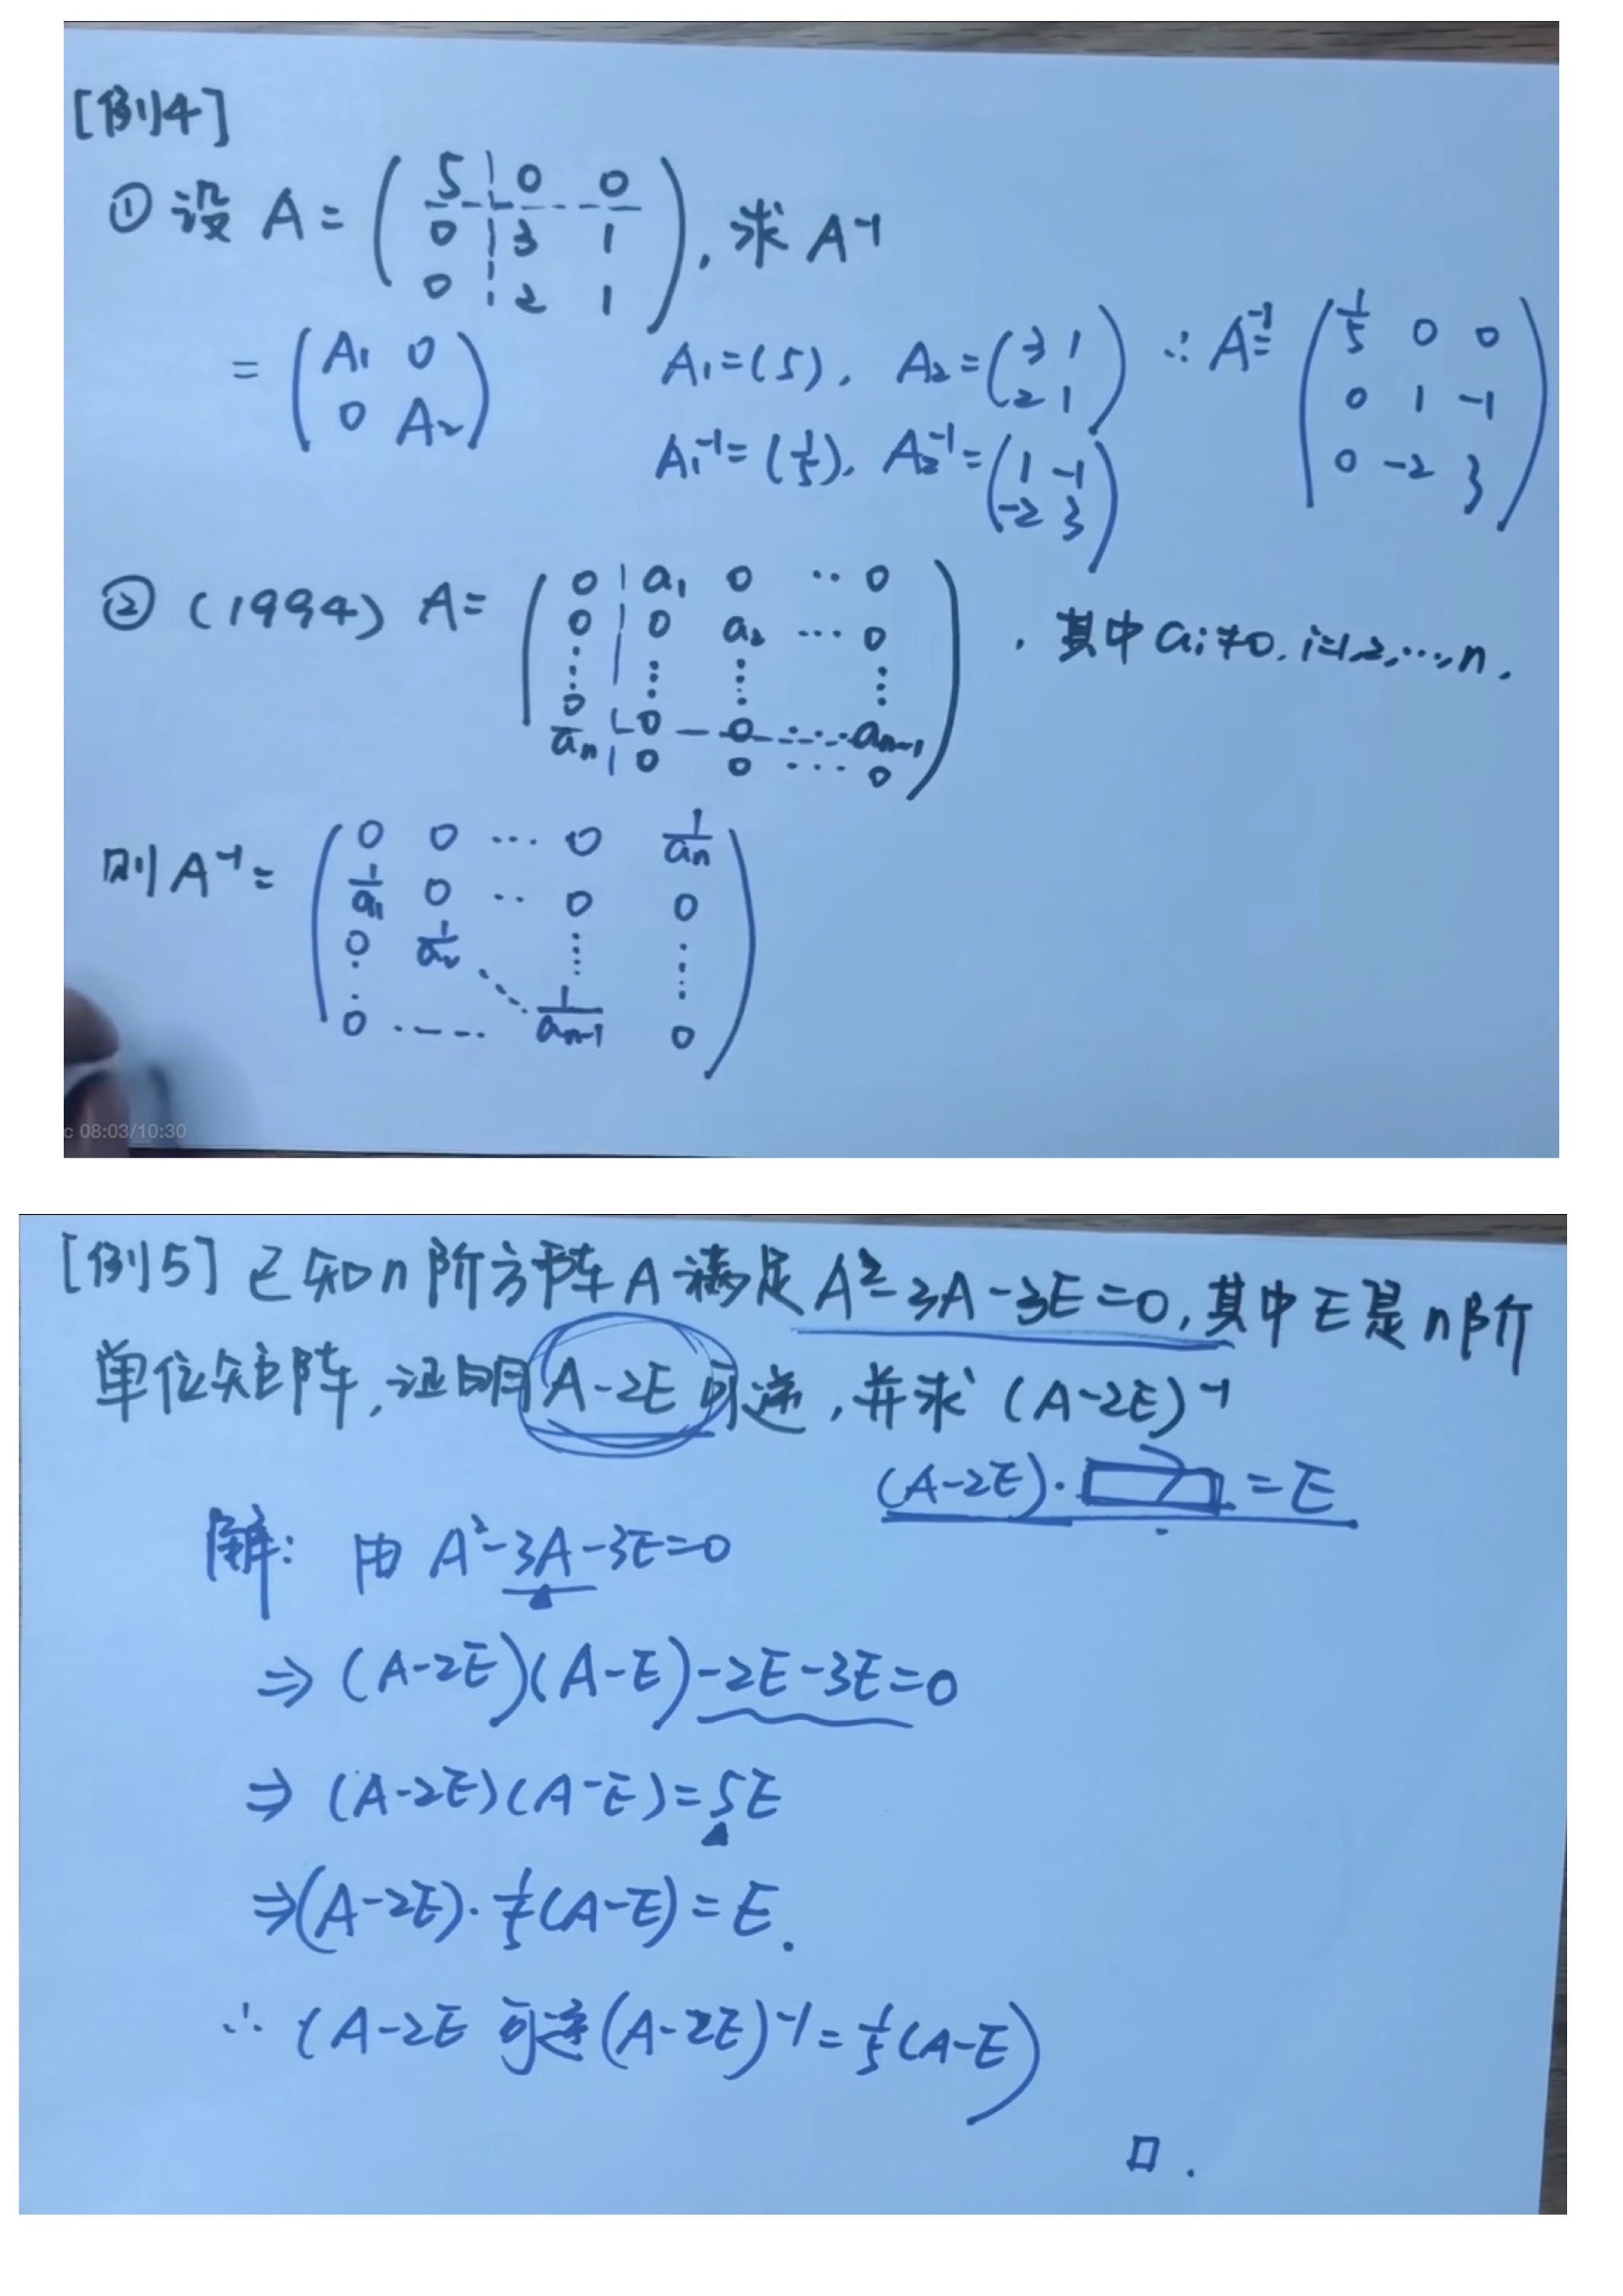 [例4]
① 设 A = ( 5 0 0
0 3 1
0 2 1 ), 求 A⁻¹
= ( A₁ 0
0 A₂ )
A₁=(5), A₂=( 3 1
2 1 )
A₁⁻¹=(1/5), A₂⁻¹=( 1 -1
-2 3 )
∴ A⁻¹= ( 1/5 0 0
0 1 -1
0 -2 3 )
② (1994) A= ( 0 a₁ 0 ‥ 0
0 0 a₂ … 0
⋮ ⋮ ⋮ ⋮
0 0 0 … aₙ₋₁
aₙ 0 0 … 0 ), 其中 aᵢ≠0, i=1,2,…,n.
则 A⁻¹= ( 0 0 … 0 1/aₙ
1/a₁ 0 ‥ 0 0
0 1/a₂ ⋮ ⋮
0 …… 1/aₙ₋₁ 0 )
c 08:03/10:30
[例5] 已知 n 阶方阵 A 满足 A²-3A-3E=0, 其中 E 是 n 阶
单位矩阵, 证明 A-2E 可逆, 并求 (A-2E)⁻¹
(A-2E)· □ = E
解: 由 A²-3A-3E=0
⇒ (A-2E)(A-E)-2E-3E=0
⇒ (A-2E)(A-E)=5E
⇒ (A-2E)·1/5(A-E)=E.
∴ (A-2E 可逆 (A-2E)⁻¹=1/5(A-E)
□.